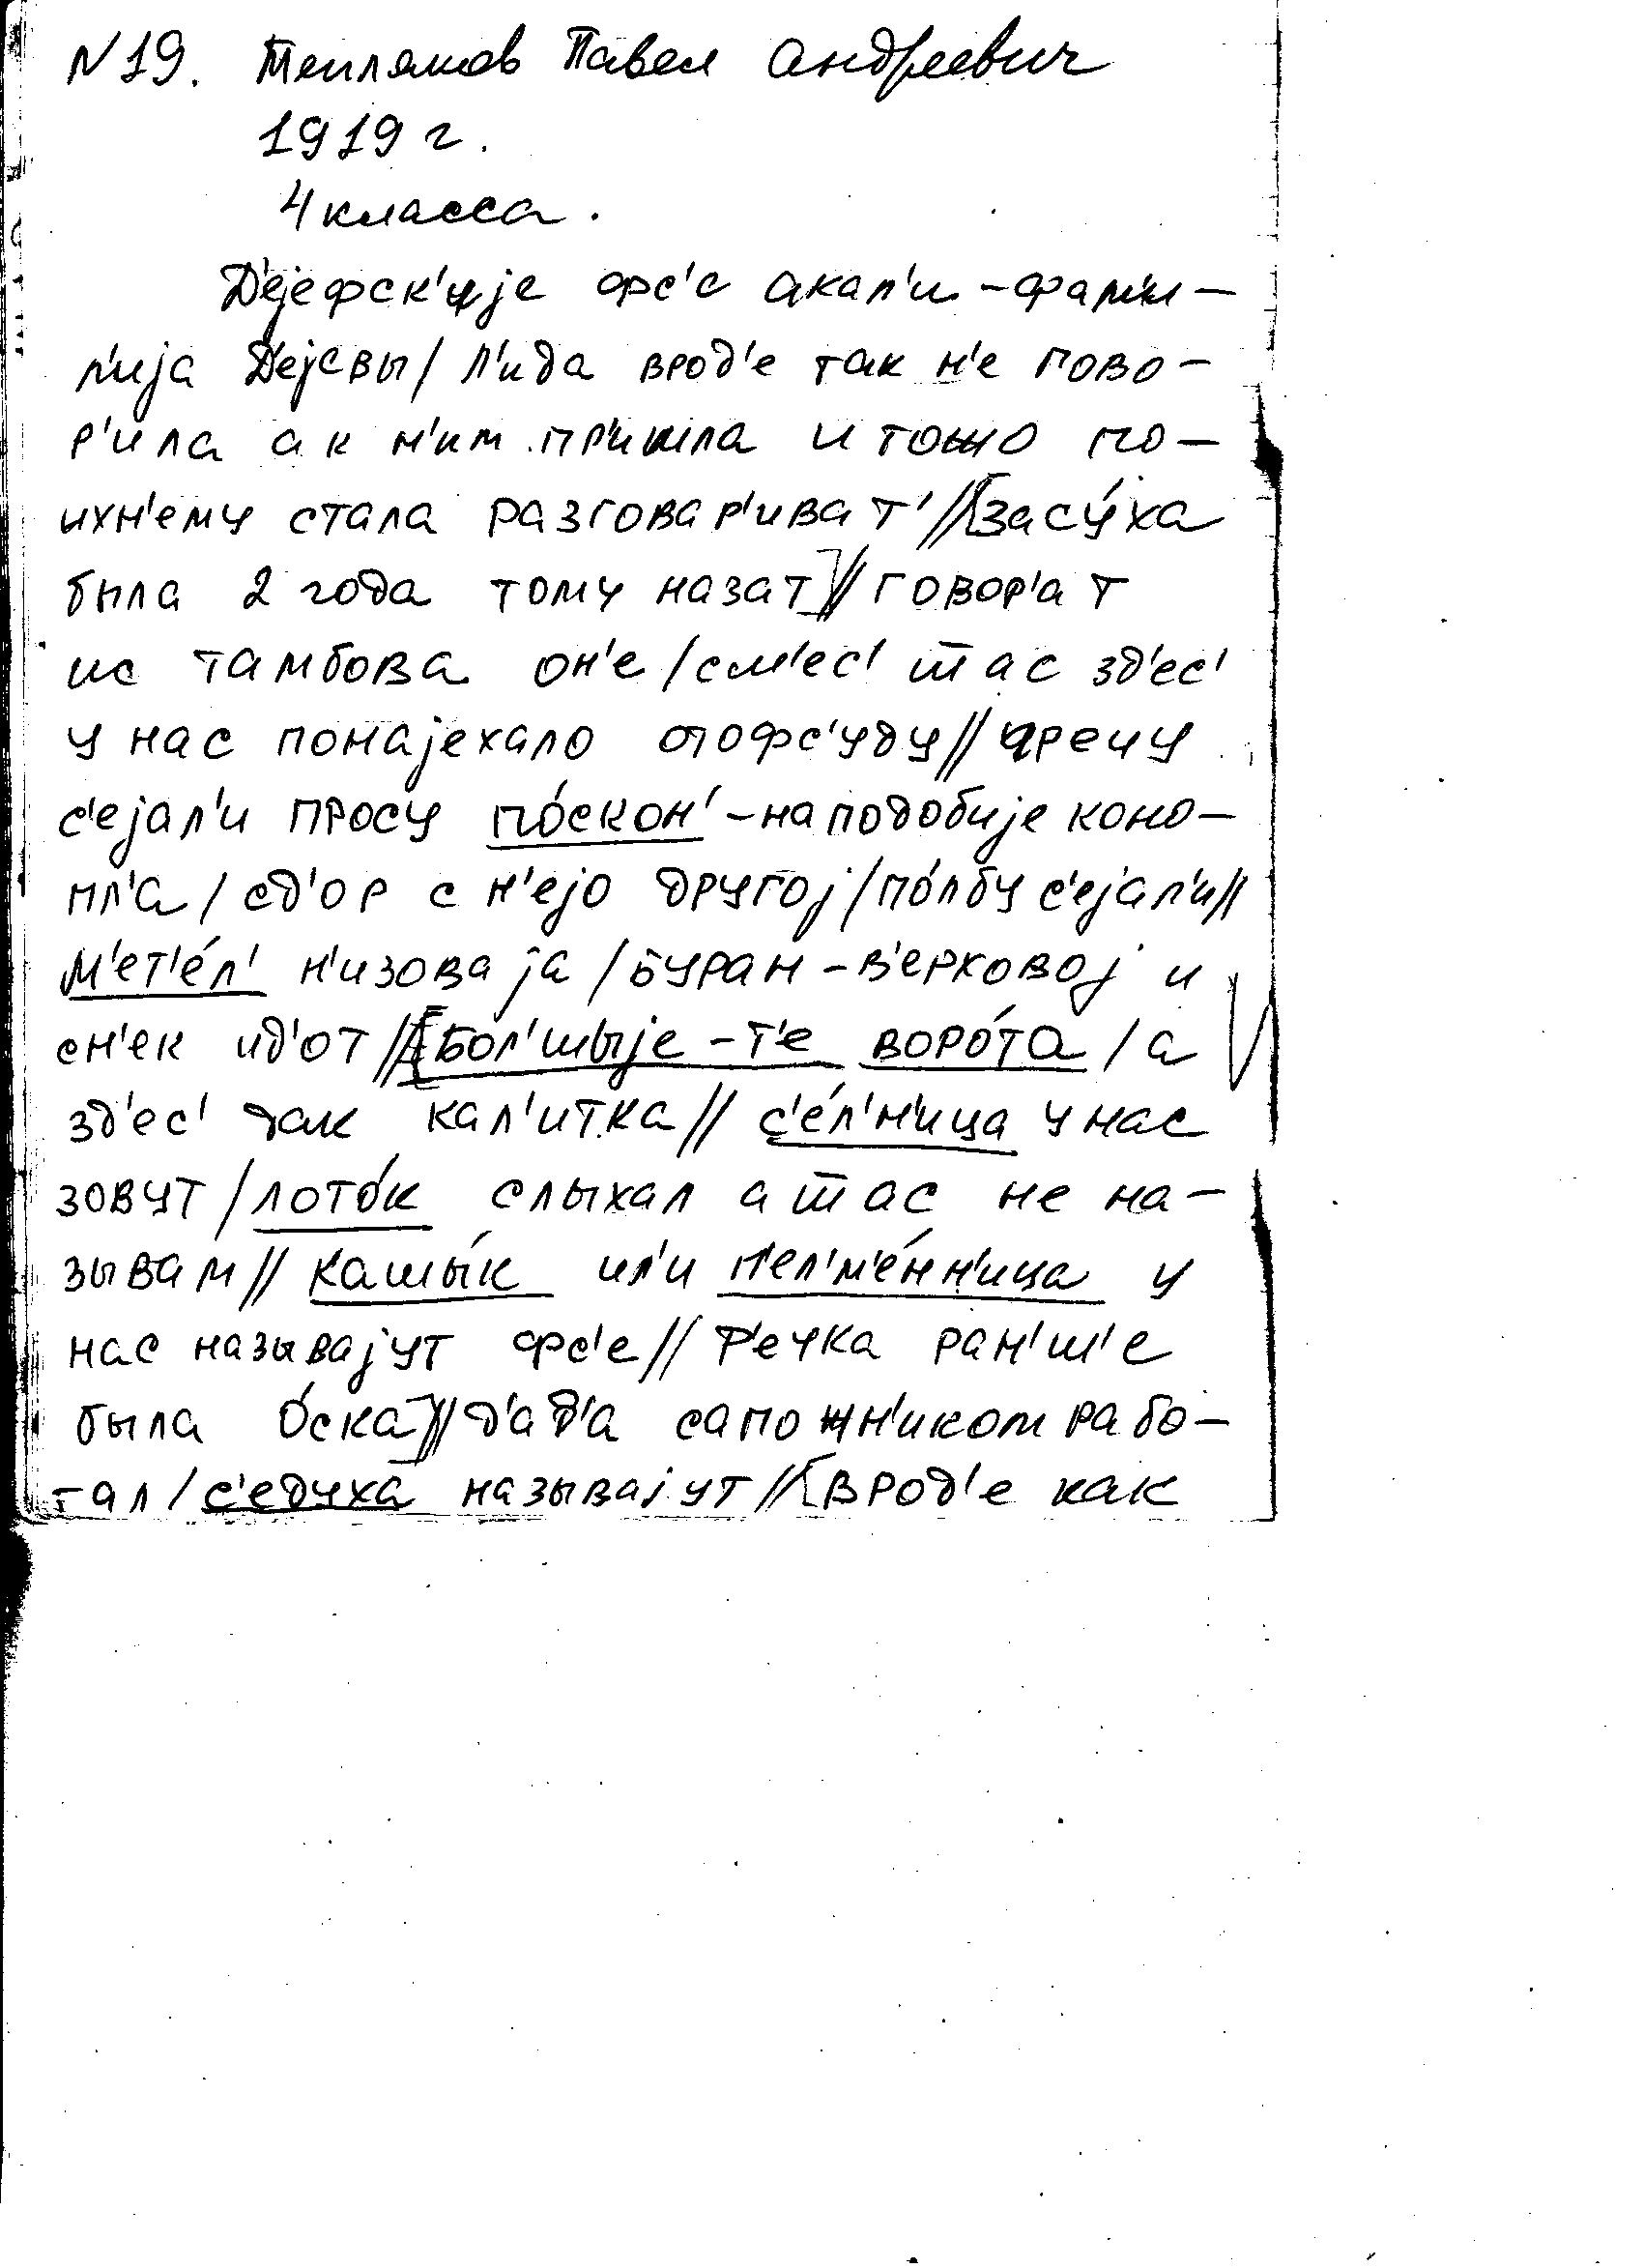 N 19. Тепляшов Павел Андреевич
1919 г.
4 класса.
Д'ејефск'ије фс'с акал'и - фам'и-
л'ија Д'ејевы / Л'ида врод'е так н'е гово-
р'ила а к н'им пр'ишла и тожо по-
ихн'ему стала разговар'иват' // [засу́ха
была 2 года тому назат] // говор'ат
ис тамбова он'е / см'ес' т̅ас зд'ес'
у нас понајехало отофс'уду // гречу
с'ејал'и просу по́скон' - наподобије коно-
пл'а / сд'ор с н'ејо другој / по́лбу с'ејал'и //
м'ет'е́л' н'изоваја / буран - в'ерховој и
сн'ек ид'от // [бол'шыје - т'е воро́та / а
зд'ес' так кал'итка // с'е́л'н'ица у нас
зовут / лото́к слыхал а т̅ас не на-
зывам // кашы́к ил'и п'ел'м'е́нн'ица у
нас называјут фс'е // р'ечка ран'ш'е
была О́ска] // д'ад'а сапожн'иком рабо-
тал / с'едуха называјут // [врод'е как